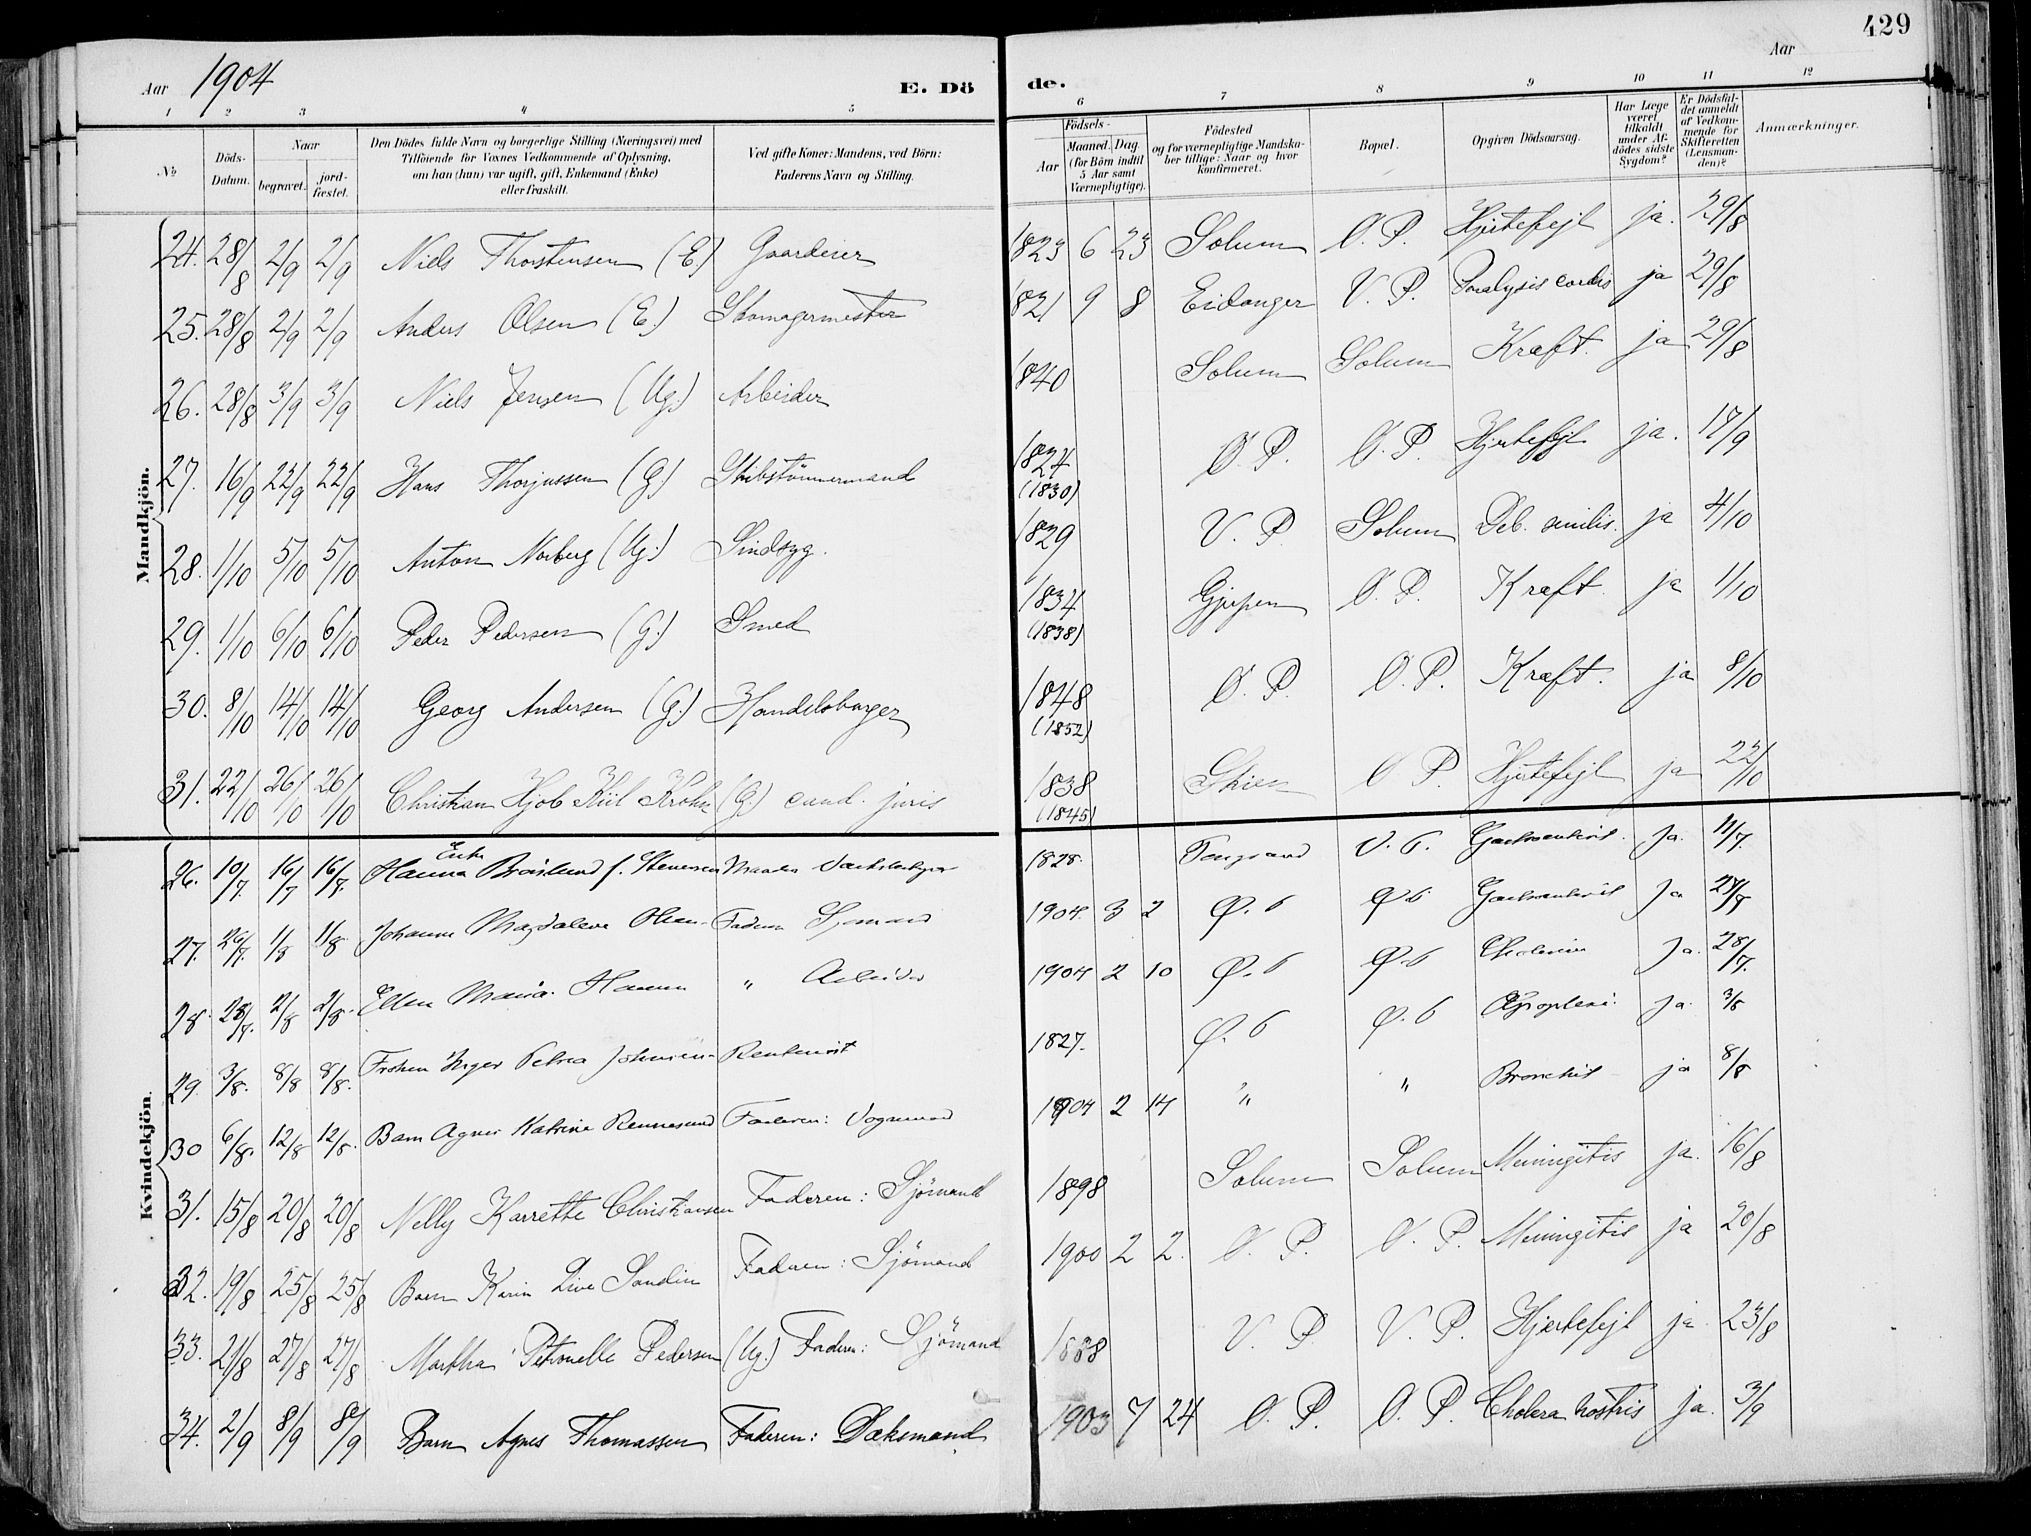 429
Aar 1904 E. Döde. Aar
1 2 3 4 5 6 7 8 9 10 11 12
№
Döds-Datum.
Naar begravet. jordfæstet.
Den Dödes fulde Navn og borgerlige Stilling (Næringsvei) med Tilföiende for Voxnes Vedkommende af Oplysning, om han (hun) var ugift, gift, Enkemand (Enke) eller fraskilt.
Ved gifte Koner: Mandens, ved Börn: Faderens Navn og Stilling.
Födsels- Aar Maaned. Dag. (for Börn indtil 5 Aar samt Værnepligtige).
Födested og for værnepligtige Mandskaber tillige: Naar og hvor konfirmeret.
Bopæl.
Opgiven Dödsaarsag.
Har Læge været tilkaldt under Afdödes sidste Sygdom?
Er Dödsfaldet anmeldt af Vedkommende for Skifteretten (Lensmanden)?
Anmærkninger.
Mandkjön.
24. 28/8 2/9 2/9 Niels Thorstensen (E.) Gaardeier 1823 6 23 Solum Ø. P. Hjertefejl ja. 29/8
25. 28/8 2/9 2/9 Anders Olsen (E.) Skomagermester 1821 9 8 Eidanger V. P. Paralysis cordis ja 29/8
26. 28/8 3/9 3/9 Niels Jensen (Ug.) Arbeider 1840 Solum Solum Kræft. ja 29/8
27. 16/9 22/9 22/9 Hans Thorjussen (G.) Skibstømmermand 1824 (1830) Ø. P. Ø. P. Hjertefejl ja. 17/9
28. 1/10 5/10 5/10 Anton Norberg (Ug.) Sindsyg. 1829 V. P. Solum Deb. senilis. ja 4/10
29. 1/10 6/10 6/10 Peder Pedersen (G.) Smed 1834 (1838) Gjerpen Ø. P. Kræft. ja 1/10
30. 8/10 14/10 14/10 Georg Andersen (G.) Handelsborger 1848 (1852) Ø. P. Ø. P. Kræft. ja 8/10
31. 22/10 26/10 26/10 Christian Hjob Kiil Krohn (G.) cand. juris 1838 (1845) Skien Ø P. Hjertefejl ja 22/10
Kvindekjön.
26. 10/7. 16/7 16/7. Enke Hanna f. 1828. V. P. Ja. 11/7
27. 26/7. 1/8 1/8 Johanne Magdalene Olsen Faderen Sjømand 1904. 3 2 Ø. P Ø P Ja
28. 28/7. 2/8 2/8 Ellen Maria Hansen " Arbeider 1904 2 10 Ø. P Ø. P Ja. 28/7.
29. 3/8. 8/8 8/8. Frøken Inger Petrea Johnsen 1827. Ø. P Ø. P Ja. 3/8
30 6/8. 12/8 12/8. Barn Agnes Katrine Rennesund Faderen: Vognmand 1904 2 14 " " Bronchit ja 8/8
31. 15/8 20/8 20/8 Nelly Karrette Christiansen Faderen: Sjömand 1898 Solum Solum Meningitis ja. 16/8
32. 19/8 25/8 25/8 Barn Karin Live Sandin Faderen: Sjömand 1900 2 2. Ø. P. Ø. P. Meningitis ja 20/8
33. 21/8 27/8 27/8 Martha Petronelle Pedersen (Ug.) Faderen: Sjömand 1888 V. P V. P. Hjertefejl ja. 23/8
34. 2/9 8/9 8/9 Barn Agnes Thomassen Faderen: Dæksmand 1903 7 24 Ø. P. Ø. P. Cholera nostris ja. 3/9